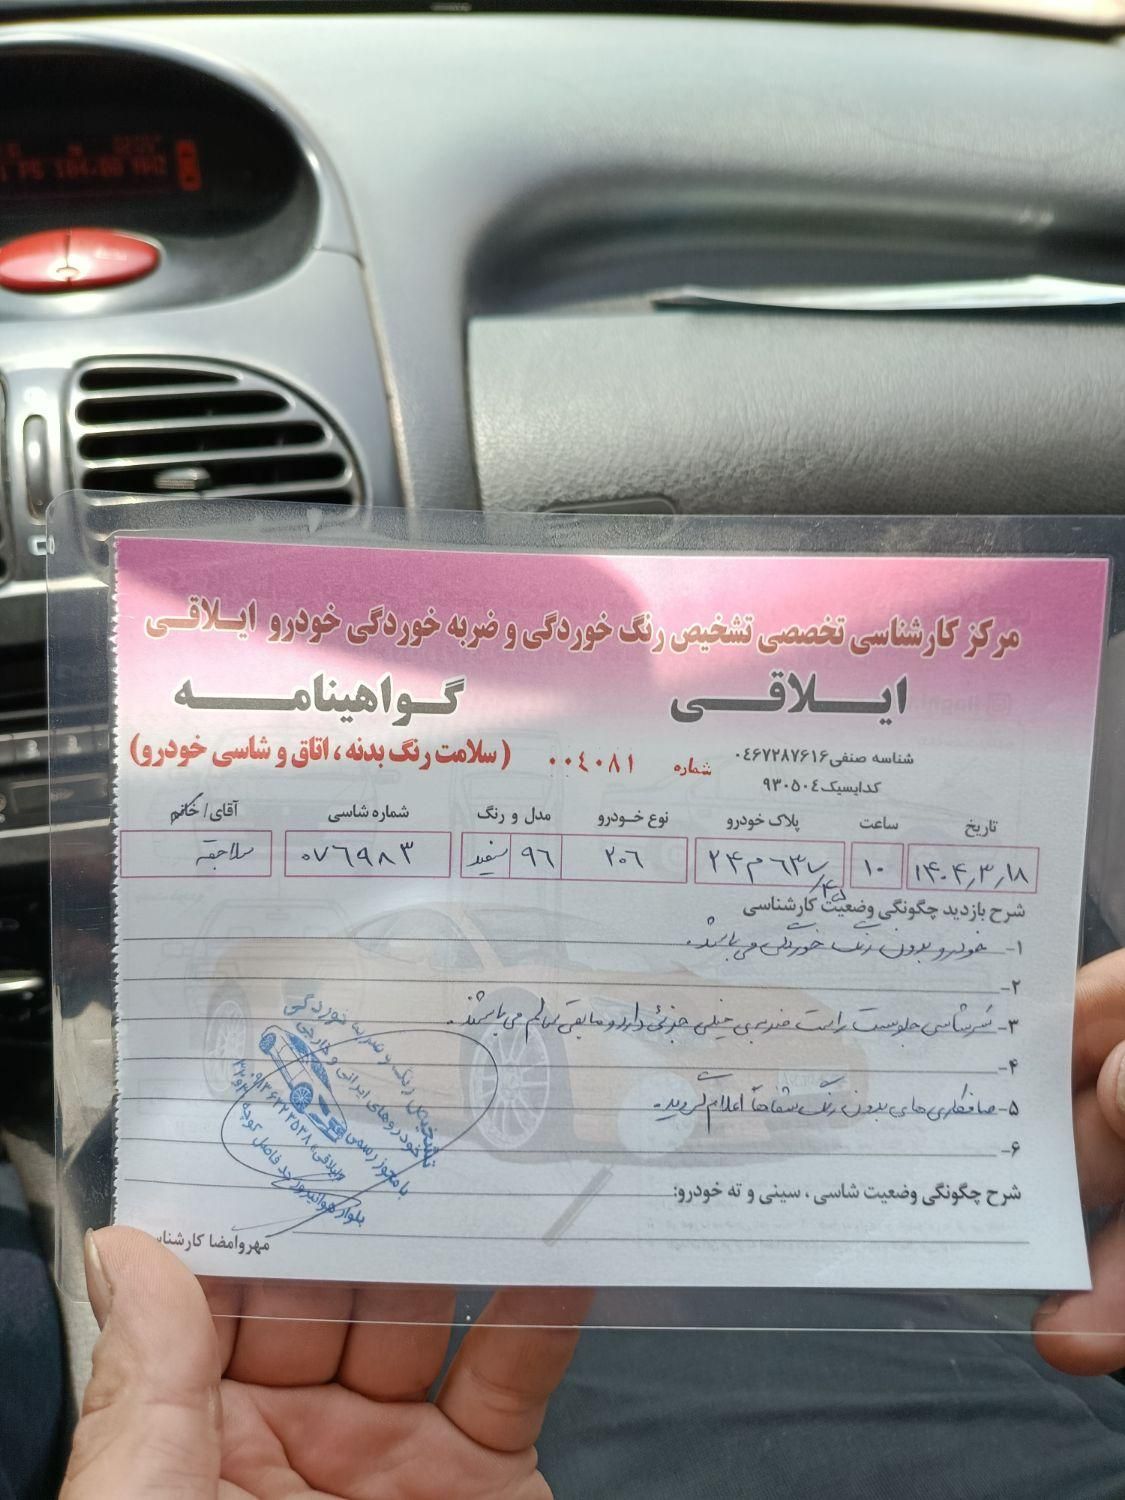 مرکز کارشناسی تخصصی تشخیص رنگ خوردگی و ضربه خوردگی خودرو ایلاقی
ایلاقی گواهینامه
شناسه صنفی ۰۴۶۷۲۸۷۶۱۶ شماره ۰۰۴۰۸۱ (سلامت رنگ بدنه ، اتاق و شاسی خودرو)
کدایسیک ۹۳۰۵۰۴
تاریخ ساعت پلاک خودرو نوع خودرو مدل و رنگ شماره شاسی آقای/ خانم
۱۴۰۴٫۳٫۱۸ ۱۰ ۲۴ م ۶۳۷ ۲۰۶ ۹۶ سفید ۰۷۶۹۸۳ سلاجقه
شرح بازدید چگونگی وضعیت کارشناسی
۱- خودرو بدون رنگ خوردگی می باشد.
۲-
۳- سرشاسی جلو سمت راست ضربه ی خیلی جزئی دارد و مابقی سالم می باشد.
۴-
۵- صافکاری های بدون رنگ شفاهاً اعلام گردید.
۶-
شرح چگونگی وضعیت شاسی ، سینی و ته خودرو:
مهر و امضا کارشناس
تشخیص رنگ و ضربه خوردگی
خودروهای ایرانی و خارجی
با مجوز رسمی